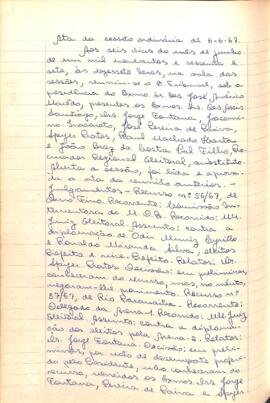 Ata da sessão ordinária de 6-6-67.
Aos seis dias do mês de junho
de um mil novecentos e sessenta e
sete, às dezessete horas, na sala das
sessões, reuniu-se o E. Tribunal, sob a
presidência do Exmo. Sr. Des. José Américo
Macêdo, presentes os Exmos. Srs. Des. Assis
Santiago, Drs. Jorge Fontana, Jacomino
Inacarato, José Pereira de Paiva,
Hayer Rotes, Raul Machado Horta
e João Braz da Costa Val Filho, Pro-
curador Regional Eleitoral, substituto.
Aberta a sessão, foi lida e aprova-
da a ata da reunião anterior. -
Julgamentos - Recurso nº 56/67, de
Ouro Fino. Recorrente: Comissão In-
terventora do M.D.B. Recorrido: MM.
Juiz Eleitoral. Assunto: contra a
diplomação de Odir Muniz
e Ronaldo Miranda Silva, eleitos
Prefeito e vice-Prefeito. Relator: Dr.
Hayer Rotes. Decisão: em preliminar,
conheceram do recurso, mas, no mérito,
negaram-lhe provimento. Recurso nº
57/67, de Rio Paranaíba. Recorrente:
Delegado da Arena-1. Recorrido: MM. Juiz
Eleitoral. Assunto: contra a diploma-
ção dos eleitos pela Arena-2. Relator:
Dr. Jorge Fontana. Decisão: em preli-
minar, por voto de desempate proferi-
do pelo Presidente, não conheceram do
recurso, vencidos os Exmos. Drs. Jorge
Fontana, Pereira de Paiva e Hayer